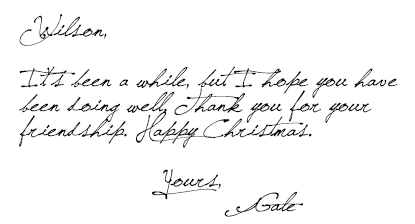 Wilson,
It's been a while, but I hope you have
been doing well, Thank you for your
friendship. Happy Christmas.
Yours,
Gale